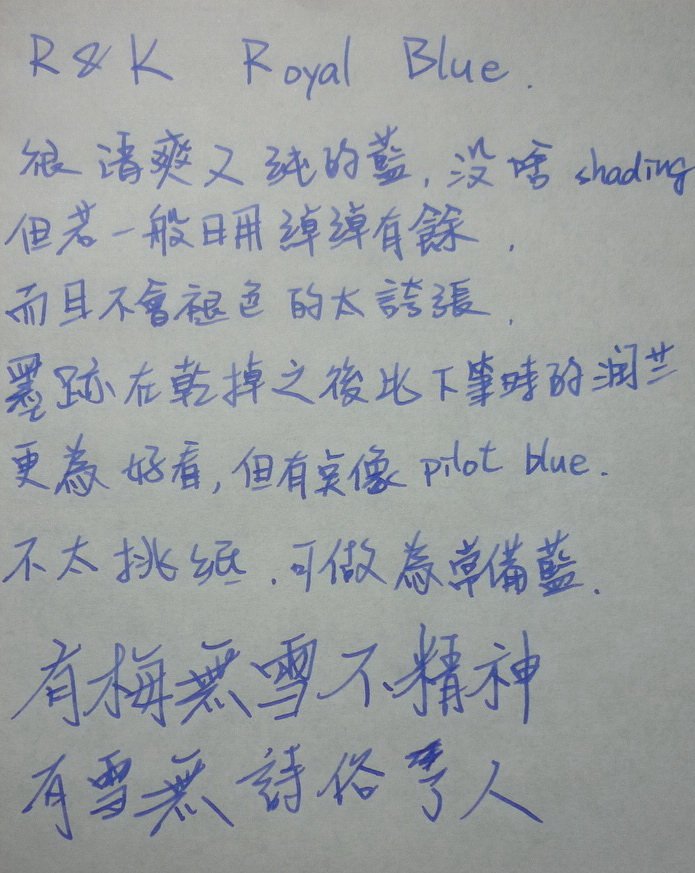 R & K Royal Blue.
很清爽又純的藍, 没啥 shading
但若一般日用綽綽有餘,
而且不會褪色的太誇張,
墨跡在乾掉之後比下筆時的润兰
更為好看, 但有点像 pilot blue.
不太挑紙, 可做為常備藍.
有梅無雪不精神
有雪無詩俗了人